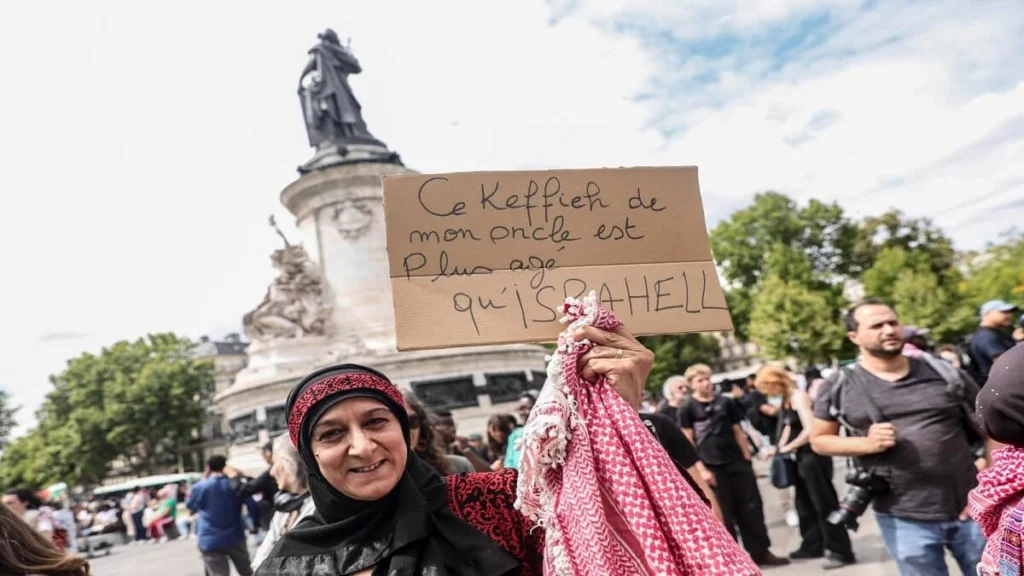 Ce Keffieh de
mon oncle est
Plus agé
qu'ISRAHELL